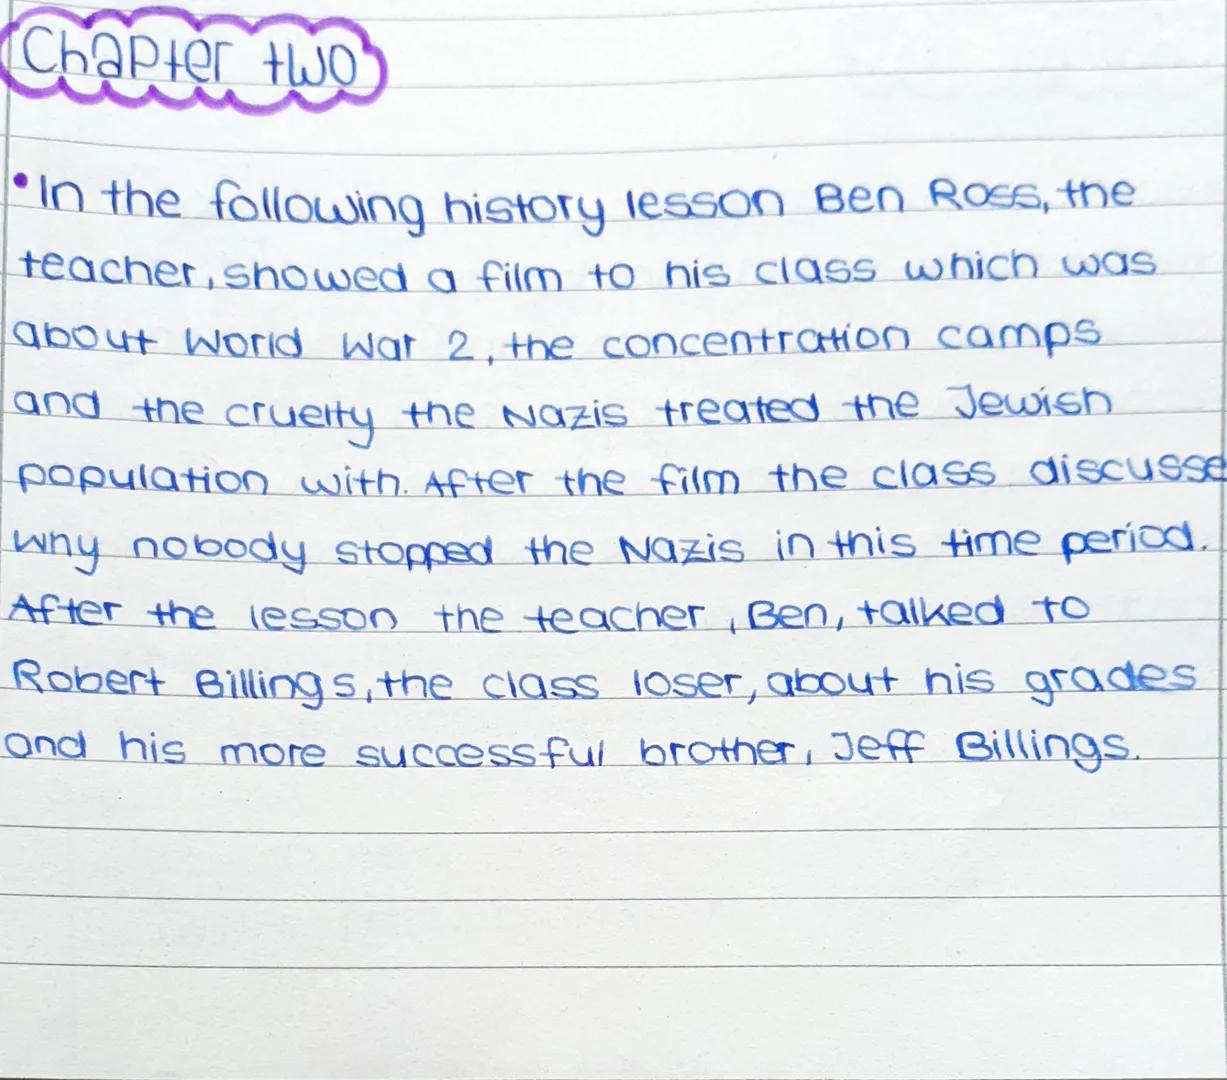 Chapter two
•In the following history lesson Ben Ross, the
teacher, showed a film to his class which was
about World War 2, the concentration camps
and the cruelty the Nazis treated the Jewish
population with. After the film the class discusse
why nobody stopped the Nazis in this time period.
After the lesson the teacher, Ben, talked to
Robert Billings, the class loser, about his grades
and his more successful brother, Jeff Billings.